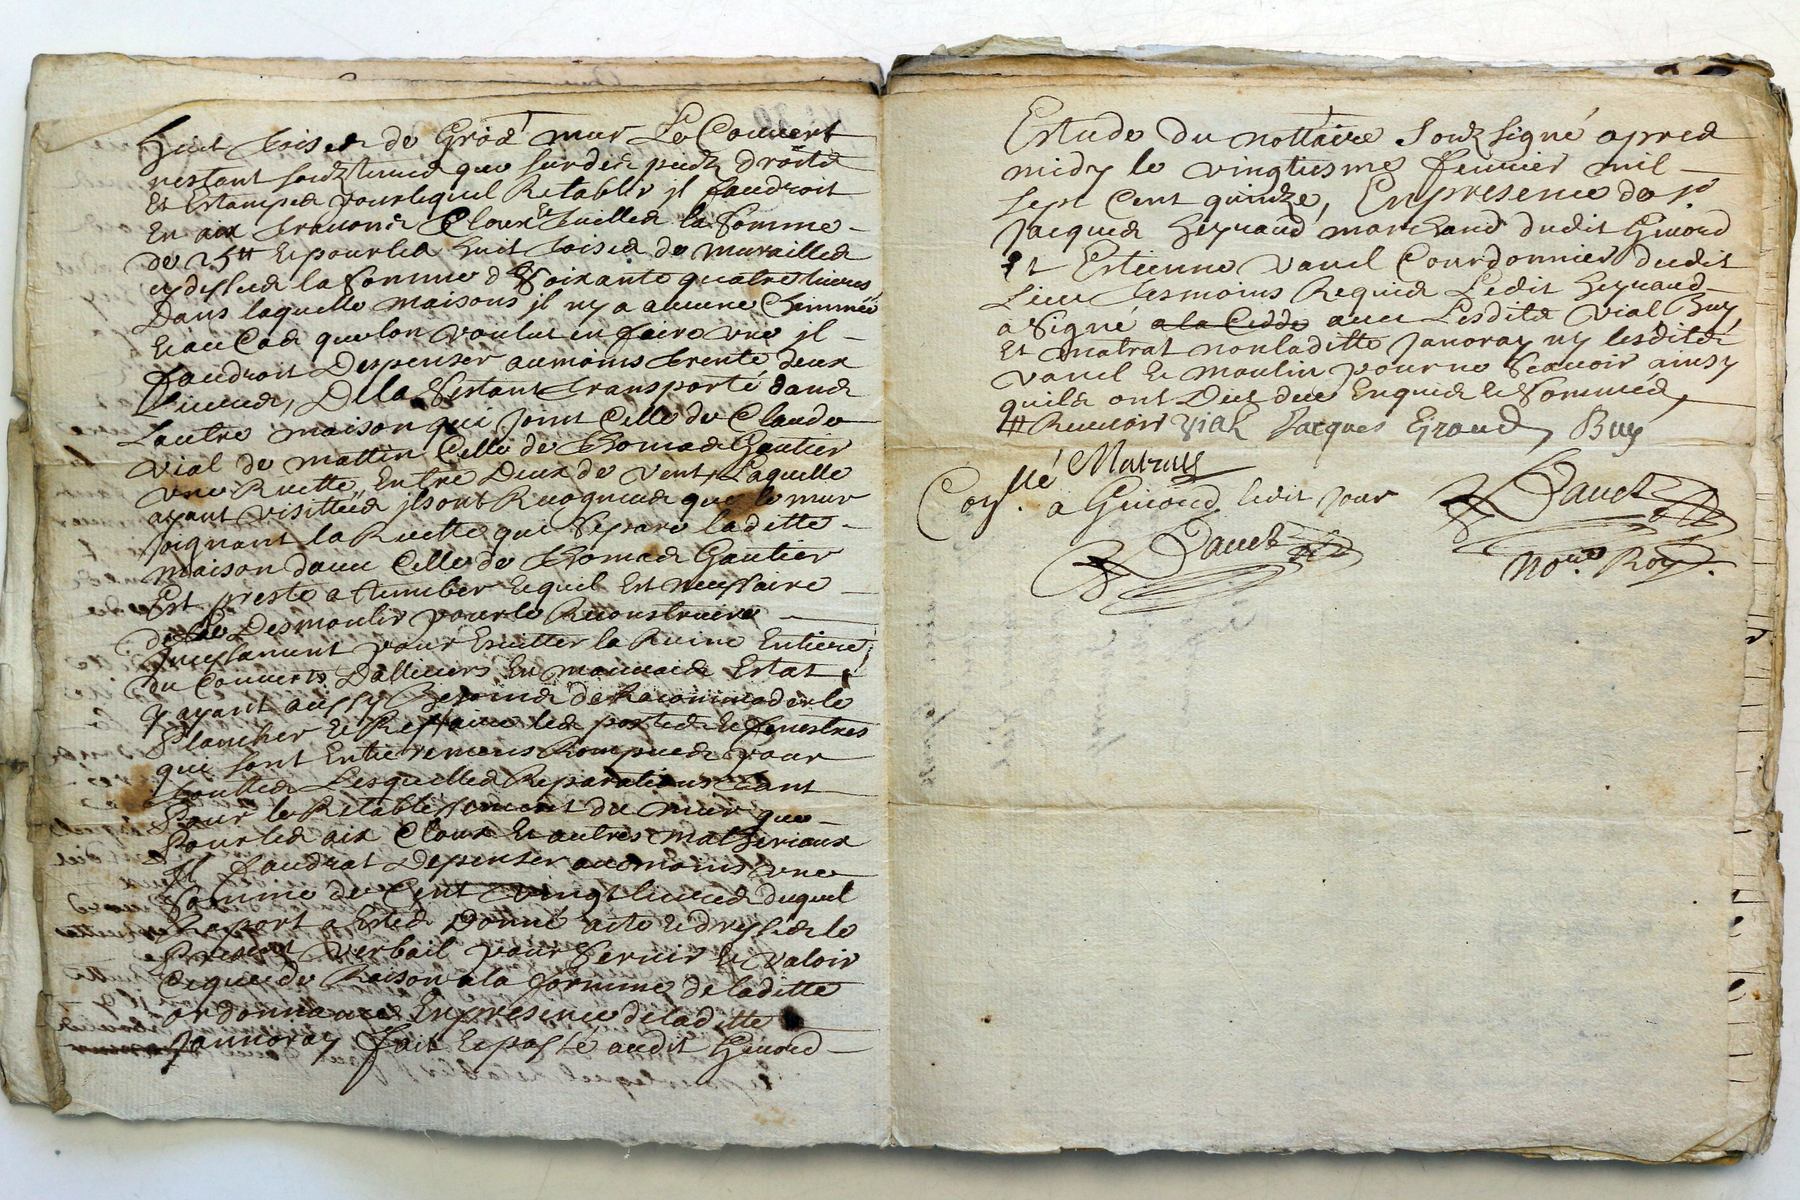 huit toises de gros mur Le Couvert
restant soustenu que sur des pieds droits
Et Estampes pour lequel Retablir il faudroit
En aix travons Cloux et tuilles la somme
de 25 ₶ Et pour les huit toises de murailles
cy dessus la somme de soixante quatre livres
Dans laquelle maisons il ny a aucune Cheminée
Et au Cas que lon voulut en faire une il
faudroit Depenser au moins trente deux
livres, De la sestant transporté dans
Lautre maison qui joint Celle de Claude
Vial de mattin Celle de Thomas Gautier
une Ruette Entre Deux de vent, Laquelle
ayant visittés ils ont Recogneus que le mur
joignant la Ruette qui separe laditte
maison davec Celle de Thomas Gautier
Est preste a tumber Lequel Est necessaire
de Le Desmoulir pour le Reconstruire
incessament pour Esvitter la Ruine Entiere
du Couverts Dallieurs En mauvais Estat
y ayant aussy besoins de Racommoder le
Plancher Et Reffaire les portes Et fenestres
qui sont Entierements Rompues pour
touttes Lesquelles Reparations tant
Pour le Retablissement du mur que
Pour les aix Cloux Et autres Matheriaux
Il faudrat depenser au moins une
somme de Cent vingt livres duquel
Raport a Estes Donné acte Et dressés le
Present verbail pour servir Et valoir
Ce que de Raison a la forme de laditte
ordonnance En presence de laditte
Janoray fait Et passé audit Givord
Estude du nottaire souzsigné apres
midy le vingtiesme fevrier mil
sept Cent quinze, En presence de sr.
Jacques heyraud marchand dudit Givord
Et Estienne vanel Courdonnier dudit
Lieu tesmoins Requis Ledit heyraud
a signé a la Cedde avec Lesdits Vial Buy
Et Matrat non laditte Janoray ny lesdits
vanel Et moulin pour ne scavoir ainsy
quils ont Dict de ce Enquis Et sommés
Vial Jacques Eyraud, Buy
Matrat
a Givord ledit jour
Nore. Roy.